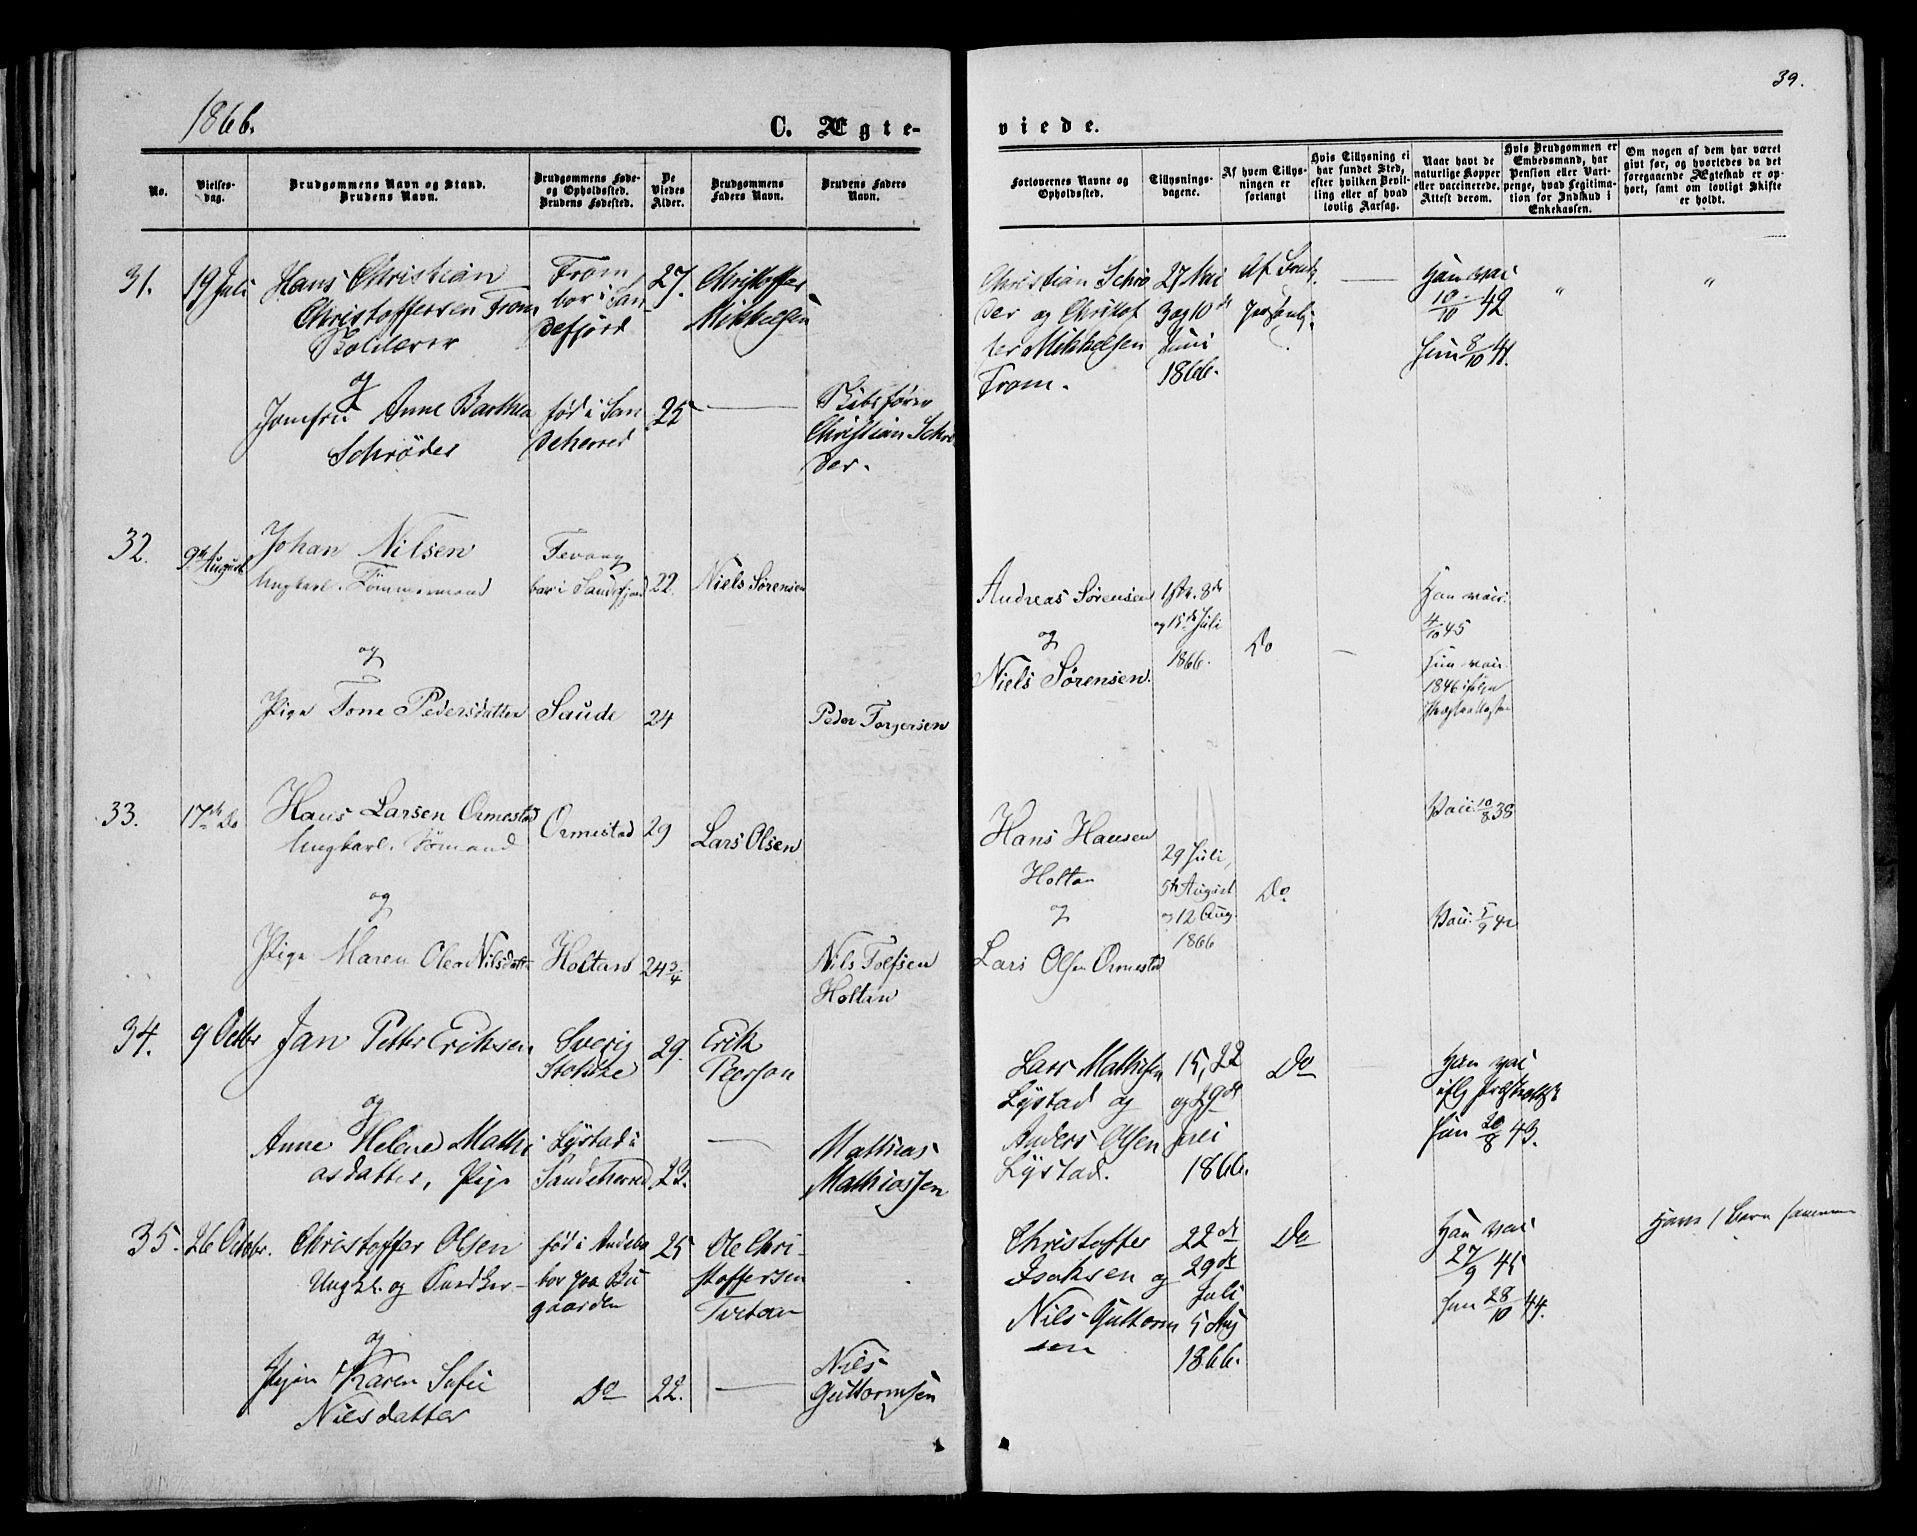 1866.
C. Ægte-
No.
Vielses-
dag.
Brudgommens Navn og Stand.
Brudens Navn.
Brudgommens Føde-
og Opholdssted.
Brudens Fødested.
De
Viedes
Alder.
Brudgommens
Faders Navn.
Brudens Faders
Navn.
31.
19 Juli
Hans Christian
Christoffersen Fram
og
Jomfru Anne Barthea
Schrøder
Fram
bor i San
defjord
fød i San
deherred
27.
25
Christoffer
Mikkelsen
Skibsfører
Christian Schrø
der.
32.
9de August
Johan Nilsen
Ungkarl. Tømmermand
og
Pige Tone Pedersdatter
bor i Sandefjord
Saude
22.
24
Niels Sørensen
Peder Torgersen
33.
17de Do
Hans Larsen Ormestad
Ungkarl. Sømand
og
Pige Maren Olea Nilsdatt
Ormestad
Holtan
29
24 3/4
Lars Olsen
Nils Tolfsen
Holtan
34.
9 Octbr
Jan Petter Eriksen
og
Anne Helene Mathi
asdatter, Pige
Sverig
Lystad i
Sandeherred
29.
23.
Erik
Peerson
Mathias
Mathiassen
35.
26 Octobr.
Christoffer Olsen
Ungk. og
og
Pigen Karen Sofie
Nielsdatter
fød i Andebo
bor paa Bu
gaarden
Do
25
22.
Ole Chri-
stoffersen
Nils
Guttormsen
39.
viede.
Forlovernes Navne og
Opholdssted.
Tillysnings-
dagene.
Af hvem Tillys-
ningen er
forlangt
Hvis Tillysning ei
har fundet Sted,
efter hvilken Bevil-
ling eller af hvad
lovlig Aarsag.
Naar havt de
naturlige Kopper
eller vaccinerede.
Attest derom.
Hvis Brudgommen er
Embedsmand, har
Pension eller Vart-
penge, hvad Legitima-
tion for Indskud i
Enkekassen.
Om nogen af dem har været
givt før, og hvorledes da det
foregaaende Ægteskab er op-
hørt, samt om lovligt Skifte
er holdt.
Christian Schrø
der og Christof
fer Mikkelsen
Fram.
27 Mai
3 og 10de
Juni
1866.
Han vac
10/10 42
Hun 8/10 41.
"
"
Andreas Sørensen
og
Niels Sørensen.
1ste. 8de
og 15de Juli
1866.
Do
Han vacc.
4/10 45
Hun vacc
1846 ifølge
Hans Hansen
Holtan
og
Lars Olsen Ormestad
29 Juli,
5te August
og 12 Aug.
1866
Do
Vacc. 10/8 38
Vacc. 5/9 42
Lars Mathisen
Lystad og
Anders Olsen
Lystad.
15, 22
og 29de
Juli
1866.
Do
Han vac
Hun 20/8 43.
Christoffer
Isaksen og
Nils Guttorm
sen
22de
29de
Juli
5 Aug
1866.
Do
Han vac
27/9 45
Hun 28/10 44.
Have 1 Barn sammen